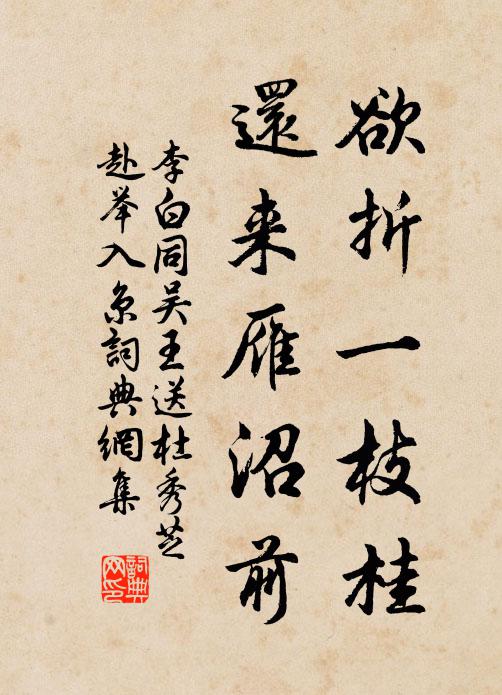 欲折一枝桂
還来雁沼前
李白同吴王送杜秀芝
赴举入京詞典網集
詞典
网印